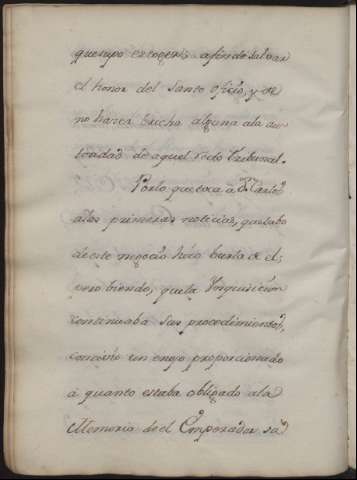 que supo escoger; a fin de salvar
el honor del Santo Oficio, y de
no hacer brecha alguna ala au-
toridad de aquel recto Tribunal.
Por lo que toca à Dn. Carlos,
alas primeras noticias, que tubo
de este negocio hizo burla de el;
pero viendo, que la Inquisicion
continuaba sus procedimientos,
concivio un enojo proporcionado
à quanto estaba obligado ala
Memoria de el Emperador su